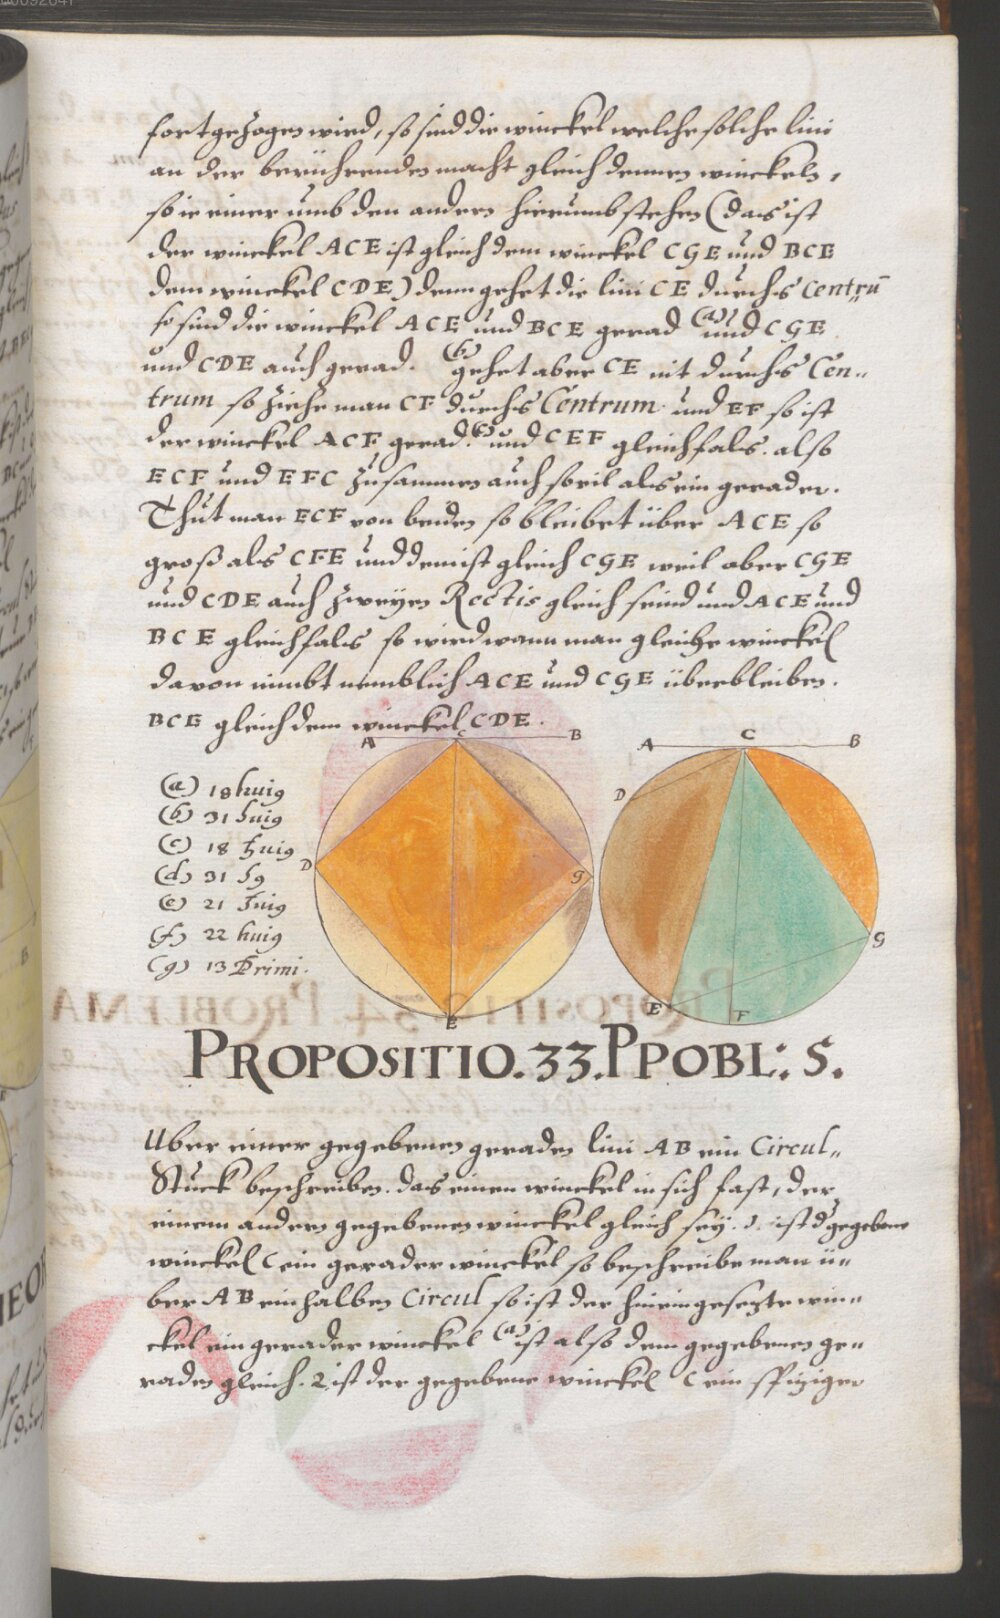 fortgezogen wird, so sind die winckel welche solche lini
an der berührenden macht gleich dennen winckeln,
so ie einer umb den andern hierumb stehen (das ist
der winckel ACE ist gleich dem winckel CGE und BCE
dem winckel CDE) denn gehet die lini CE durchs Centrū
so sind die winckel ACE und BCE gerad (a) und CGE
und CDE auch gerad. (b) gehet aber CE nit durchs Cen„
trum so ziehe man CF durchs Centrum und EF so ist
der winckel ACF gerad. (c) und CEF gleichfals. also
ECF und EFC zusammen auch sovil als ein gerader.
Thut man ECF von beiden so bleibet über ACE so
groß als CFE und dem ist gleich CGE weil aber CGE
und CDE auch zweyen Rectis gleich seind und ACE und
BCE gleichfals so wird wann man gleiche winckel
davon nimbt nemblich ACE und CGE überbleiben.
BCE gleich dem winckel CDE.
A C B
A C B
D
(a) 18 huig
(b) 31 huig
(c) 18 huig
(d) 31 hg
(e) 21 huig
(f) 22 huig
(g) 13 Primi.
D g
G
E
E F
PROPOSITIO. 33. PPOBL: 5.
Uber einer gegebenen geraden lini AB ein Circul„
Stuck beschreiben. das einen winckel in sich fast, der
einem andern gegebenen winckel gleich sey. 1. ist d' gegebene
winckel C ein gerader winckel so beschreibe man ü„
ber AB ein halben Circul so ist der hineingesezte win„
ckel ein gerader winckel (a) ist also dem gegebenen ge„
raden gleich. 2. ist der gegebene winckel C ein spiziger